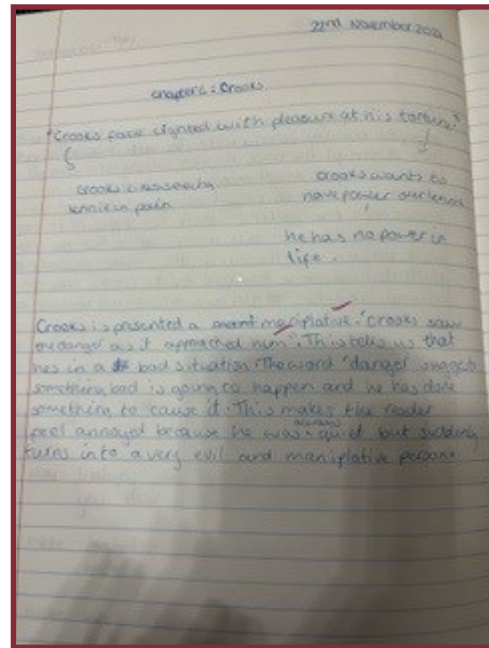 22nd November 2021
Chapter 4: Crooks
"Crooks face lighted with pleasure at his torture."
Crooks likes seeing
lennie in pain
crooks wants to
have power over lennie
he has no power in
life.
Crooks is presented a maniplative. "Crooks saw
the danger as it approached him". This tells us that
hes in a bad situation. The word 'danger' suggests
something bad is going to happen and he has done
something to cause it. This makes the reader
feel annoyed because he was always quiet but suddenly
turns into a very evil and maniplative person.